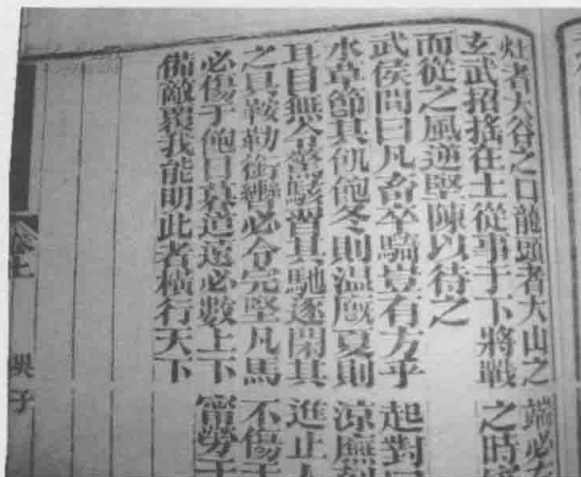 灶者大谷之口龍頭者大山之端必左
玄武招搖在上從事于下將戰之時審
而從之風逆堅陳以待之
武侯問曰凡畜卒騎豈有方乎起對曰
水草節其飢飽冬則温廄夏則涼廡刻
耳目無令驚駭習其馳逐閑其進止人
之具鞍勒銜轡必令完堅凡馬不傷于
必傷于飽日暮道遠必數上下甯勞于
備敵覆我能明此者橫行天下
卷上 吳子